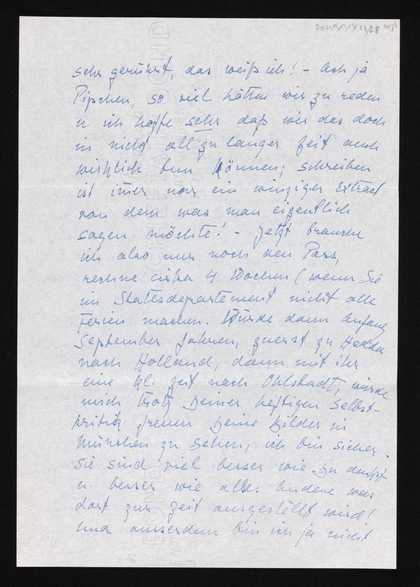 sehr gerührt, das weiß ich! – Ach ja
Pipchen, so viel hätten wir zu reden
u ich hoffe sehr daß wir das doch
in nicht allzu langer Zeit auch
wirklich tun können; schreiben
ist im̄er nur ein winziger Extract
von dem was man eigentlich
sagen möchte! – Jetzt brauche
ich also nur noch den Pass,
rechne cirka 4 Wochen (wenn Sie
im Statesdepartement nicht alle
Ferien machen. Würde dann Anfang
September fahren, zuerst zu Hedda
nach Holland, dann mit ihr
eine kl. Zeit nach Ohlstadt, würde
mich trotz Deiner heftigen Selbst-
kritik freuen Deine Bilder in
München zu sehen, ich bin sicher
Sie sind viel besser wie Du denkst
u besser wie alles Andere was
dort zur Zeit ausgestellt wird!
Und ausserdem bin ich ja nicht